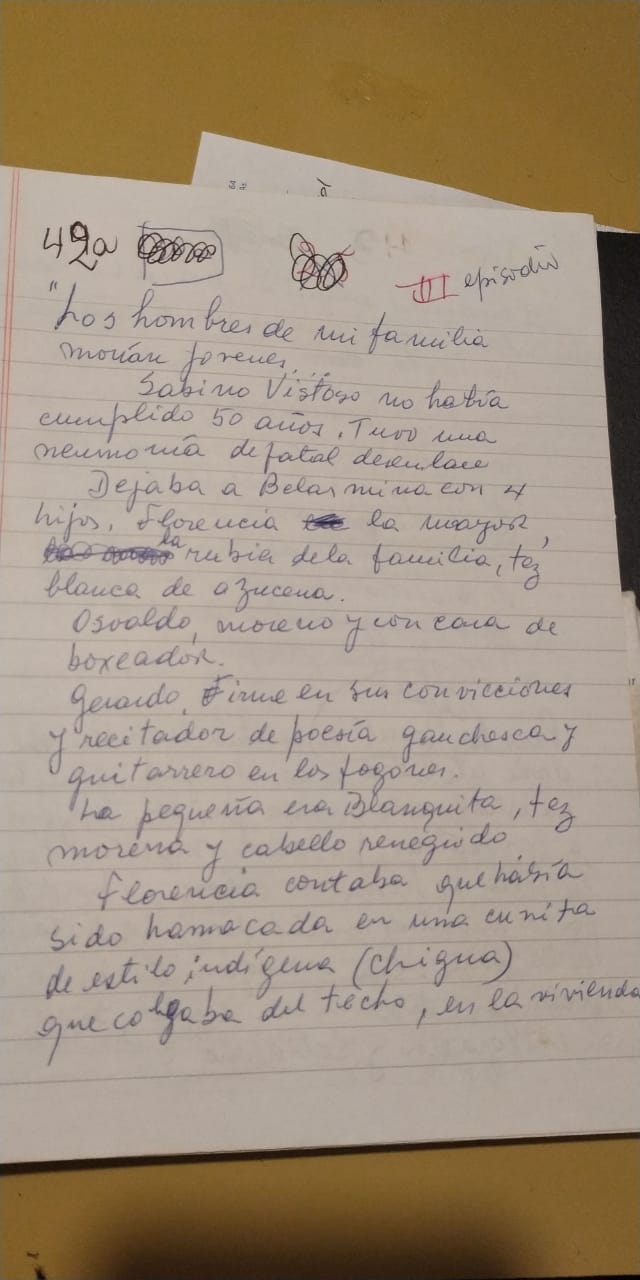 42a
III episodio
"Los hombres de mi familia
morían jovenes....
Sabino Vistoso no había
cumplido 50 años. Tuvo una
neumonía de fatal desenlace
Dejaba a Belarmina con 4
hijos. Florencia la mayor,
la rubia de la familia, tez
blanca de azucena.
Osvaldo, moreno y con cara de
boxeador.
Gerardo, Firme en sus convicciones
y recitador de poesía gauchesca y
guitarrero en los fogones.
La pequeña era Blanquita, tez
morena y cabello renegrido
Florencia contaba que había
sido hamacada en una cunita
de estilo indígena (chigua)
que colgaba del techo, en la vivienda